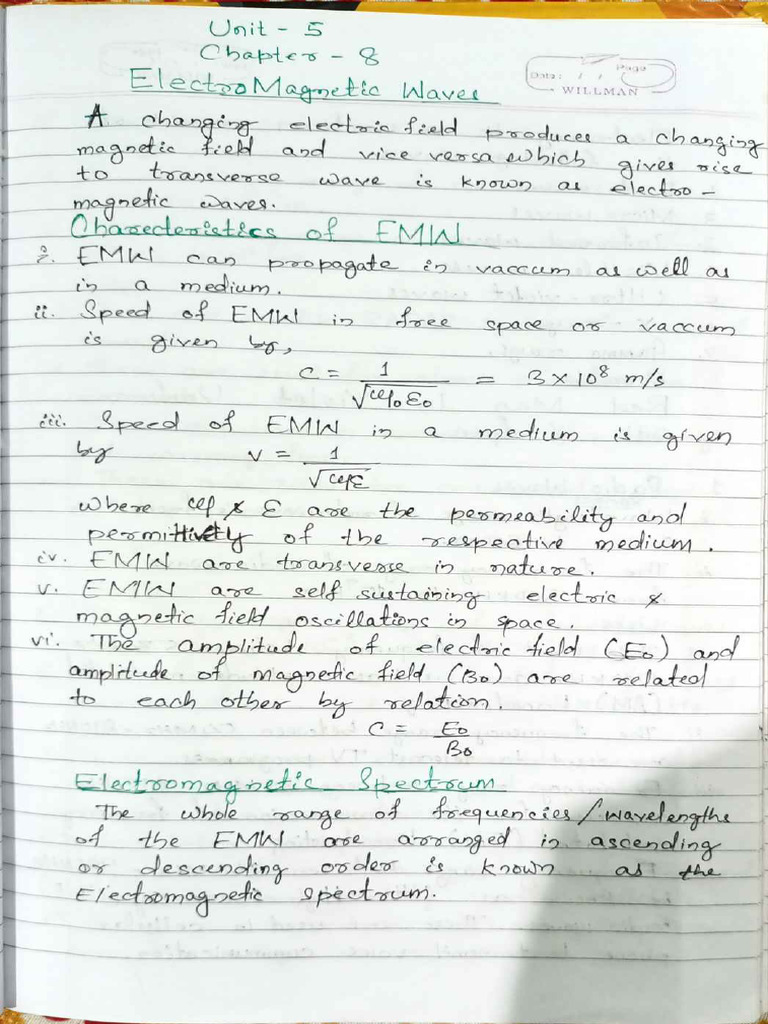 Unit - 5
Chapter - 8
Date: / / Page
WILLMAN
ElectroMagnetic Waves
A changing electric field produces a changing
magnetic field and vice versa which gives rise
to transverse wave is known as electro-
magnetic waves.
Charecteristics of EMW
i. EMW can propagate in vaccum as well as
in a medium.
ii. Speed of EMW in free space or vaccum
is given by,
c = 1/√μ₀ε₀ = 3 × 10⁸ m/s
iii. Speed of EMW in a medium is given
by v = 1/√με
where μ & ε are the permeability and
permittivety of the respective medium.
iv. EMW are transverse in nature.
v. EMW are self sustaining electric &
magnetic field oscillations in space.
vi. The amplitude of electric field (E₀) and
amplitude of magnetic field (B₀) are related
to each other by relation.
c = E₀/B₀
Electromagnetic Spectrum
The whole range of frequencies/wavelengths
of the EMW are arranged in ascending
or descending order is known as the
Electromagnetic spectrum.